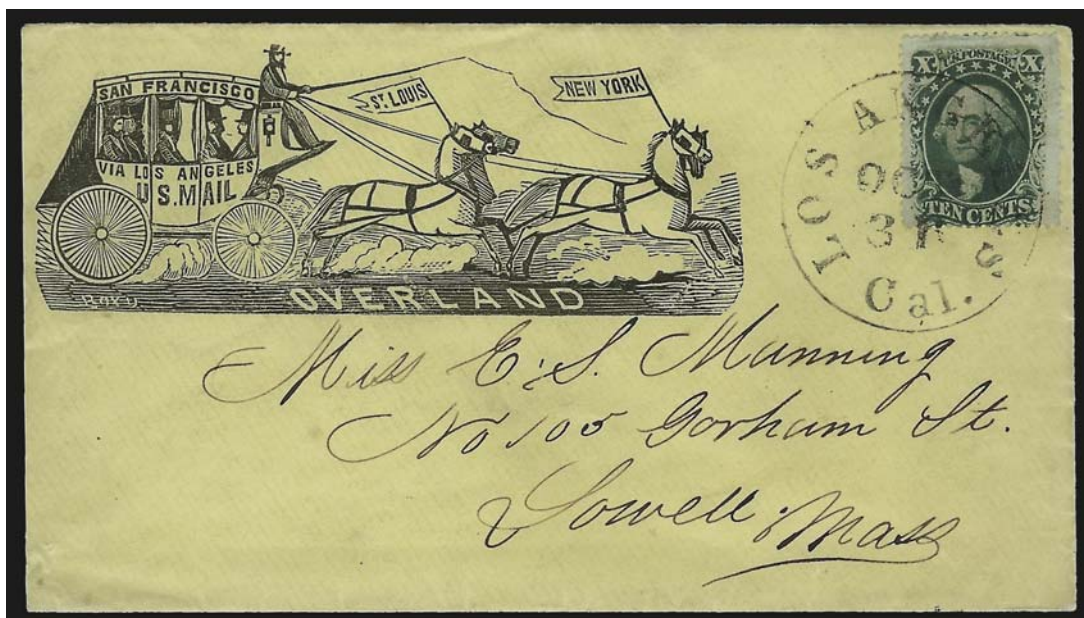 SAN FRANCISCO
VIA LOS ANGELES
U.S. MAIL
ST. LOUIS
NEW YORK
OVERLAND
U.S. POSTAGE
X X
TEN CENTS
LOS
Cal.
Miss E. S. Manning
No 105 Gorham St.
Lowell. Mass